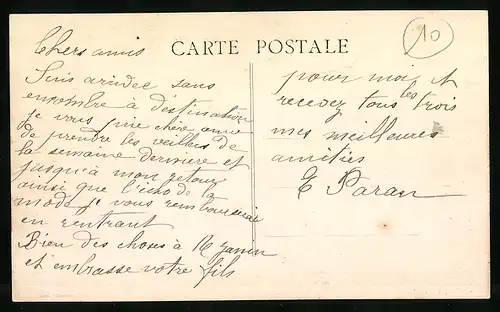 10
CARTE POSTALE
Chers amis
Suis arrivée sans
encombre à destination
je vous prie chère amie
de prendre les veillées de
la semaine dernière et
jusqu'à mon retour
ainsi que l'écho de la
mode je vous rembourserai
en rentrant
Bien des choses à
et embrasse votre fils
pour moi et
recevez tous les trois
mes meilleures
amitiés
E Paran